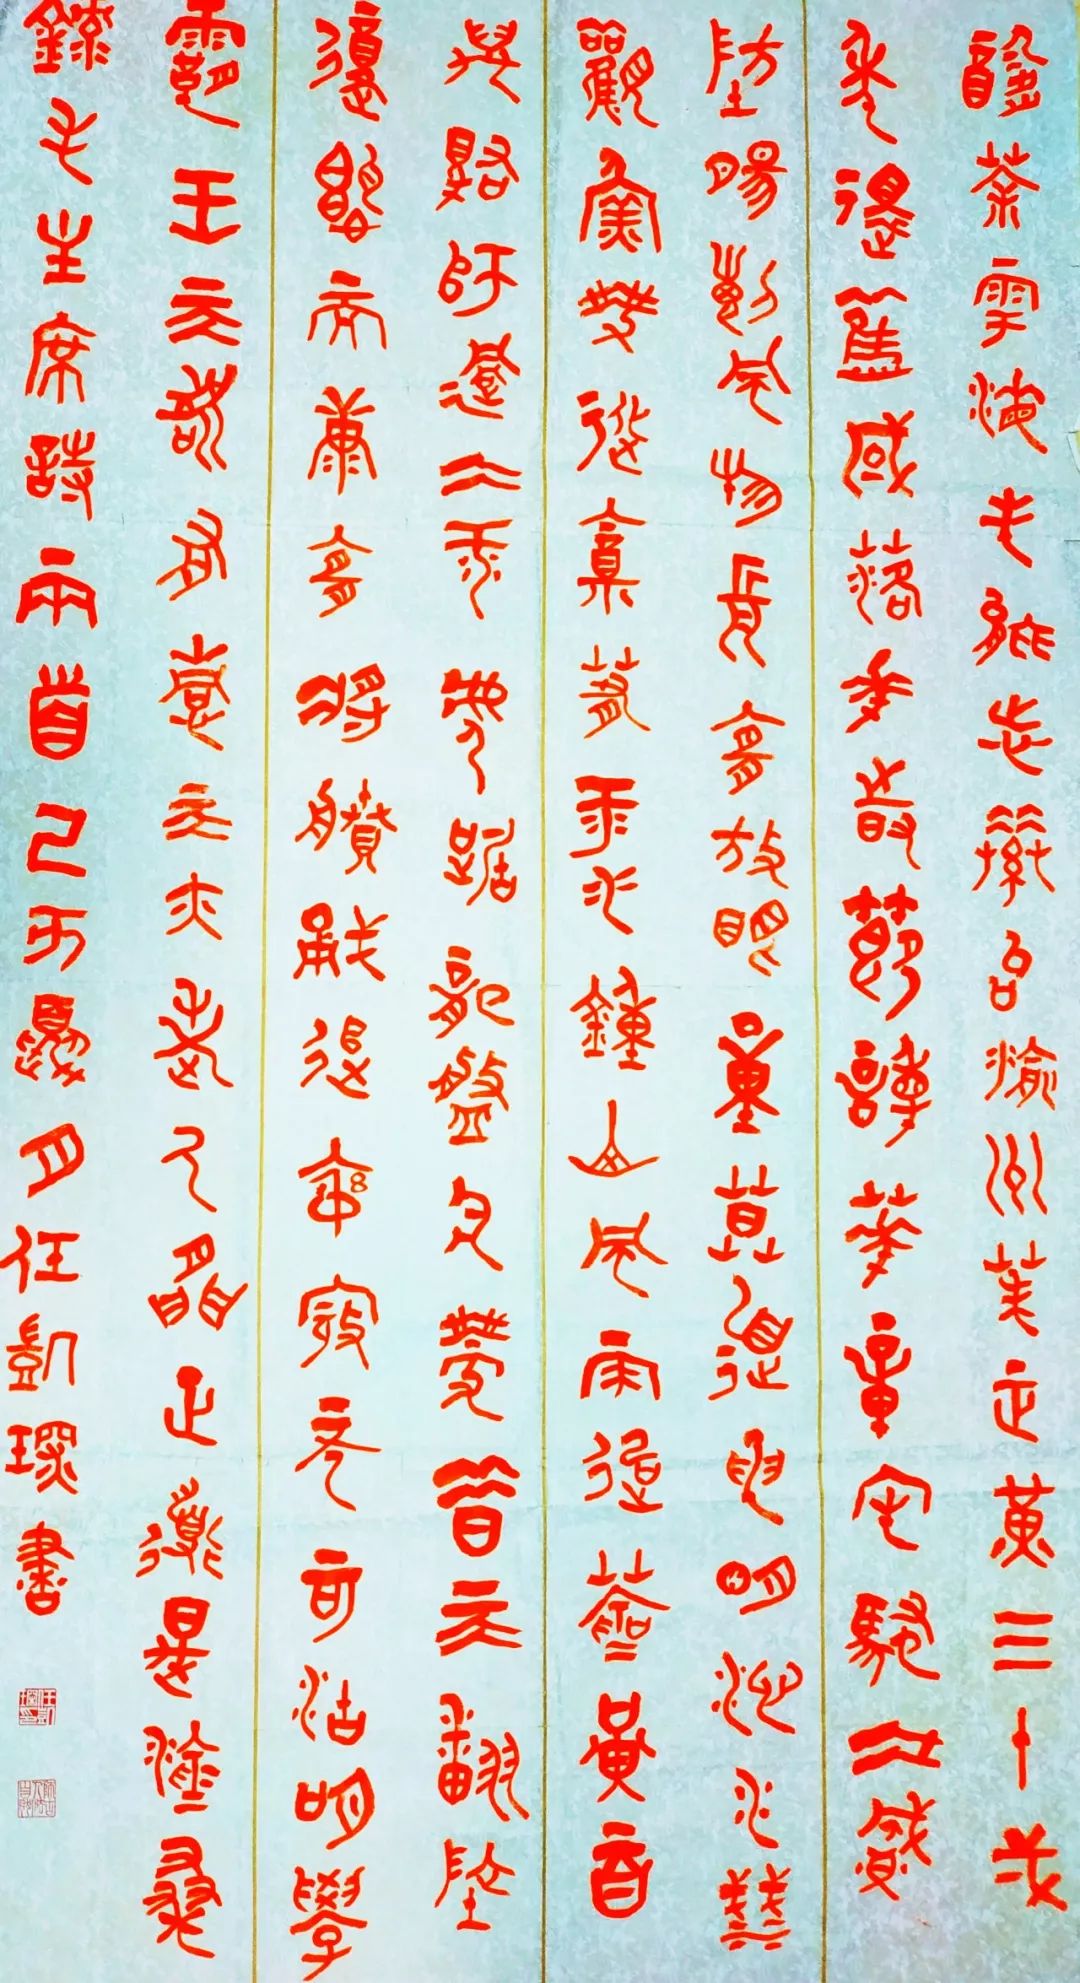 飲茶粵海未能忘索句渝州葉正黃三十一
年還舊國落花時節讀華章牢騷太盛
防腸斷風物長宜放眼量莫道昆明池水淺
觀魚勝過富春江鍾山風雨起蒼黃百
萬雄師過大江虎踞龍盤今勝昔天翻地
覆慨而慷宜將剩勇追窮寇不可沽名學
霸王天若有情天亦老人間正道是滄桑
錄毛主席詩兩首己亥夏月任凱環書